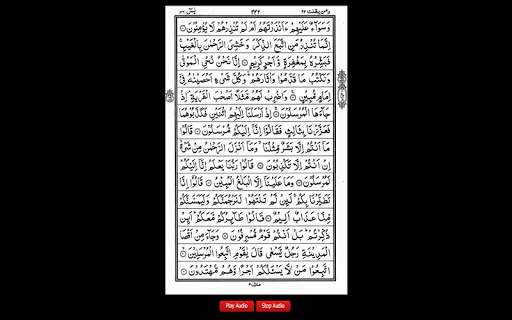 ومن يقنت ٢٢ ٤٤٢ يس ٣٦
وَسَوَآءٌ عَلَيْهِمْ ءَاَنْذَرْتَهُمْ اَمْ لَمْ تُنْذِرْهُمْ لَا يُؤْمِنُوْنَ
اِنَّمَا تُنْذِرُ مَنِ اتَّبَعَ الذِّكْرَ وَخَشِىَ الرَّحْمٰنَ بِالْغَيْبِ
فَبَشِّرْهُ بِمَغْفِرَةٍ وَّاَجْرٍ كَرِيْمٍ اِنَّا نَحْنُ نُحْىِ الْمَوْتٰى
وَنَكْتُبُ مَا قَدَّمُوْا وَاٰثَارَهُمْ وَكُلَّ شَىْءٍ اَحْصَيْنٰهُ فِىْٓ
اِمَامٍ مُّبِيْنٍ وَاضْرِبْ لَهُمْ مَّثَلًا اَصْحٰبَ الْقَرْيَةِ اِذْ
جَآءَهَا الْمُرْسَلُوْنَ اِذْ اَرْسَلْنَآ اِلَيْهِمُ اثْنَيْنِ فَكَذَّبُوْهُمَا
فَعَزَّزْنَا بِثَالِثٍ فَقَالُوْٓا اِنَّآ اِلَيْكُمْ مُّرْسَلُوْنَ قَالُوْا
مَآ اَنْتُمْ اِلَّا بَشَرٌ مِّثْلُنَا وَمَآ اَنْزَلَ الرَّحْمٰنُ مِنْ شَىْءٍ
اِنْ اَنْتُمْ اِلَّا تَكْذِبُوْنَ قَالُوْا رَبُّنَا يَعْلَمُ اِنَّآ اِلَيْكُمْ
لَمُرْسَلُوْنَ وَمَا عَلَيْنَآ اِلَّا الْبَلٰغُ الْمُبِيْنُ قَالُوْٓا اِنَّا
تَطَيَّرْنَا بِكُمْ لَئِنْ لَّمْ تَنْتَهُوْا لَنَرْجُمَنَّكُمْ وَلَيَمَسَّنَّكُمْ
مِّنَّا عَذَابٌ اَلِيْمٌ قَالُوْا طَآئِرُكُمْ مَّعَكُمْ اَئِنْ
ذُكِّرْتُمْ بَلْ اَنْتُمْ قَوْمٌ مُّسْرِفُوْنَ وَجَآءَ مِنْ اَقْصَا
الْمَدِيْنَةِ رَجُلٌ يَّسْعٰى قَالَ يٰقَوْمِ اتَّبِعُوا الْمُرْسَلِيْنَ
اتَّبِعُوْا مَنْ لَّا يَسْئَلُكُمْ اَجْرًا وَّهُمْ مُّهْتَدُوْنَ
Play Audio Stop Audio